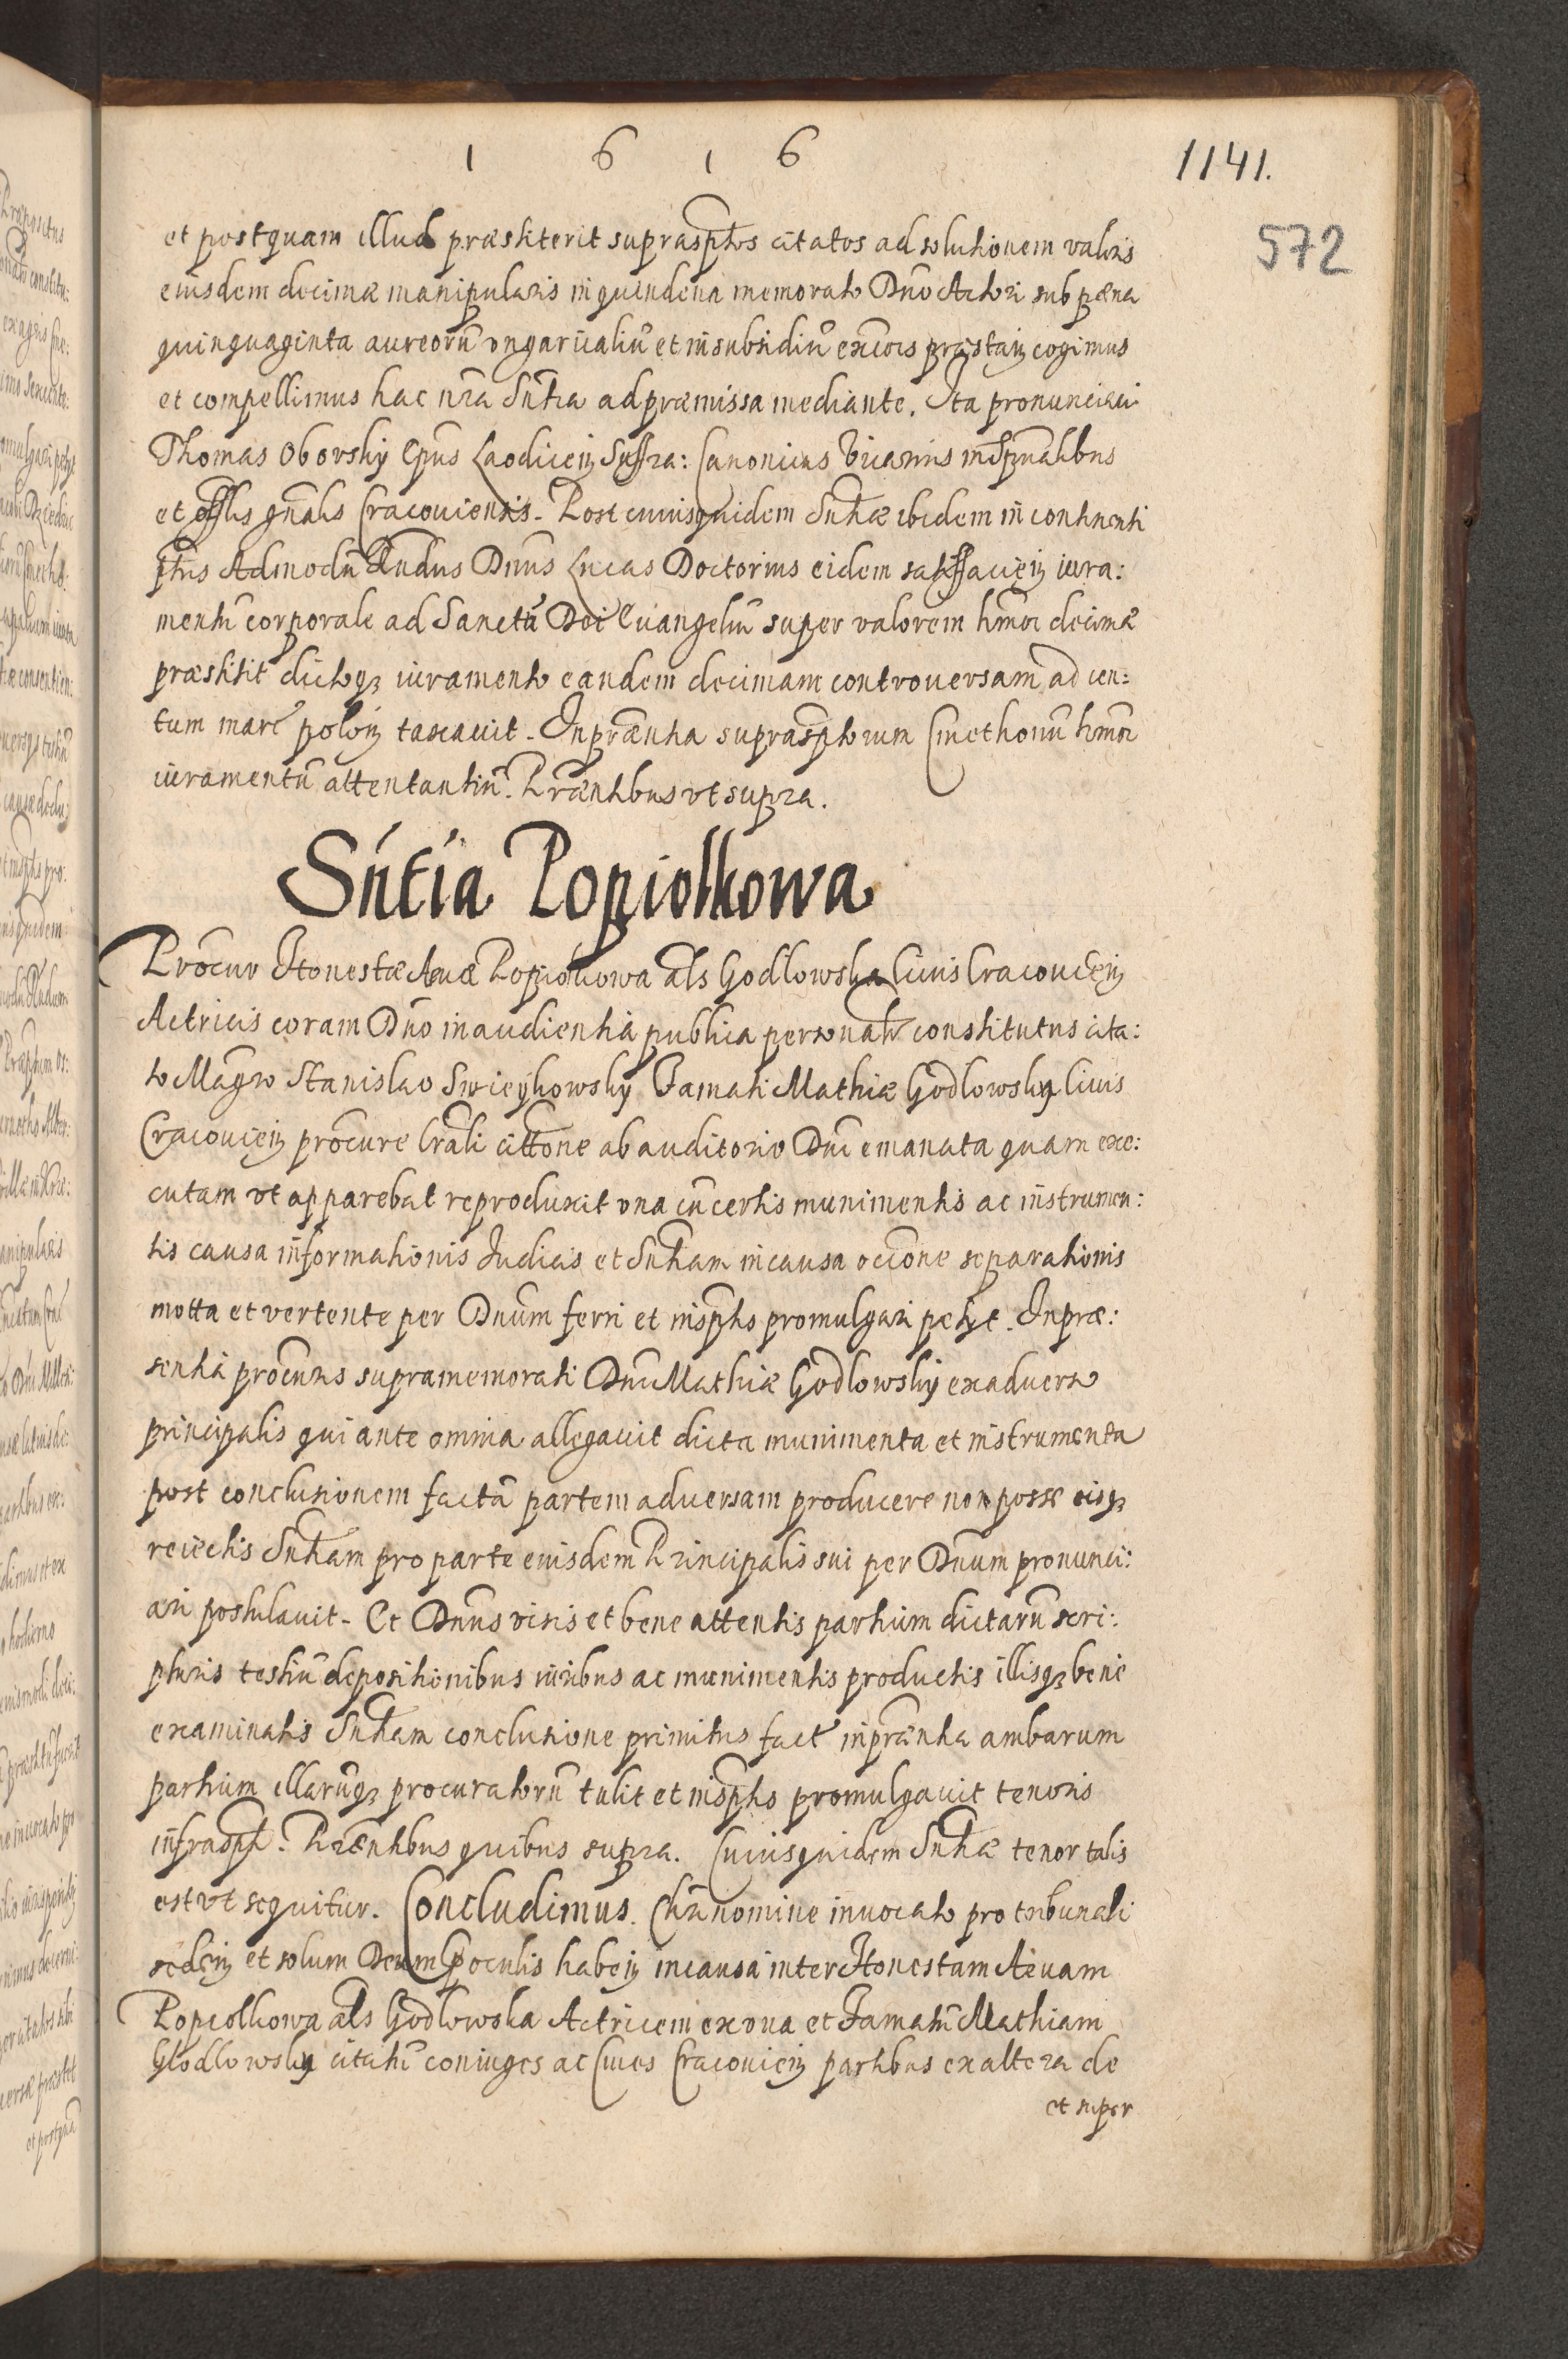 1 6 1 6
1141.
572
et postquam illud præstiterit suprasptos citatos ad solutionem valoris
eiusdem decimæ manipularis in quindena memorato Dno Actori sub pæna
quinquaginta aureorũ ungaricaliũ et in subsidiũ excõis præstan cogimus
et compellimus hac nra Sntia ad præmissa mediante. Ita pronunciavi
Thomas Oborsky Epus Laodicen Suffra: Canonicus Vicarius in Spualibus
et offlis gnalis Cracoviensis. Post cuiusquidem Sntiæ ibidem in continenti
ptus Admodũ Rndus Dnus Lucas Doctorius eidem satisfacien iura:
mentũ corporale ad Sanctã Dei Evangeliũ super valorem hmoi decimæ
præstitit dictoqz iuramento eandem decimam controversam ad cen:
tum marc polon taxavit. In præntia supraspto rum Cmethonũ hmoi
iuramentũ attentantiũ. Præntibus ut supra.
Sńtia Popiolkowa
Procur Honestæ Annæ Popiolkowa als Godlowska Civis Cracovien
Actricis coram Dno in audientia publica personalr constitutus cita:
to Magro Stanislao Swieykowsky Famati Mathiæ Godlowsky Civis
Cracovien procure lrali cittone ab auditorio Dni emanata quam exe:
cutam ut apparebat reproduxit una cũ certis munimentis ac instrumen:
tis causa informationis Iudicis et Sntiam in causa occone separationis
motta et vertente per Dnum ferri et in sptis promulgari petyt. In præ:
sentia procuris supramemorati Dni Mathiæ Godlowsky ex adverso
principalis qui ante omnia allegavit dicta munimenta et instrumenta
post conclusionem factã partem adversam producere non posse eisqz
reiectis Sntiam pro parte eiusdem Principalis sui per Dnum pronunci:
ari postulavit. Et Dnus visis et bene attentis partium dictarũ scri:
pturis testiũ depositionibus iuribus ac munimentis productis illisqz bene
examinatis Sntiam conclusione primitus fact in præntia ambarum
partium illarũqz procuratorũ tulit et in sptis promulgavit tenoris
infraspti. Præntibus quibus supra. Cuiusquidem Sntiæ tenor talis
est ut sequitur. Concludimus. Chri nomine invocato pro tribunali
seden et solum Deum præ oculis haben in causa inter Honestam Annam
Popiolkowa als Godlowska Actricem ex una et Famatũ Mathiam
Glodlowsky citatũ coniuges ac Cives Cracovien partibus ex altera de
et super